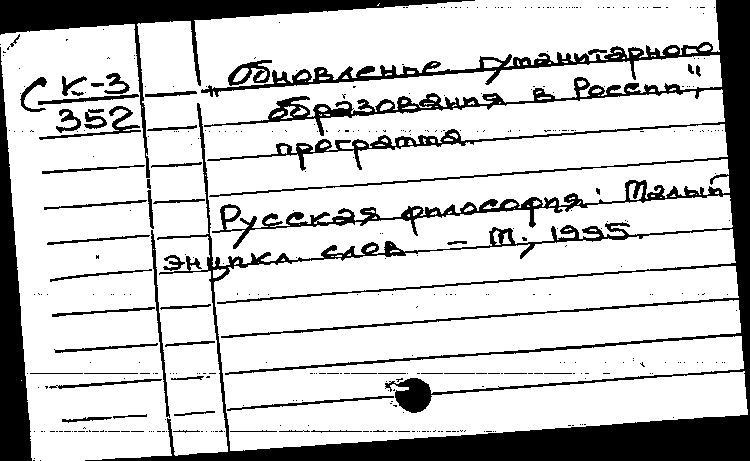 С К-3
352
„Обновление гуманитарного
образования в России",
программа.
Русская философия: Малый
энцикл. слов. – М., 1995.